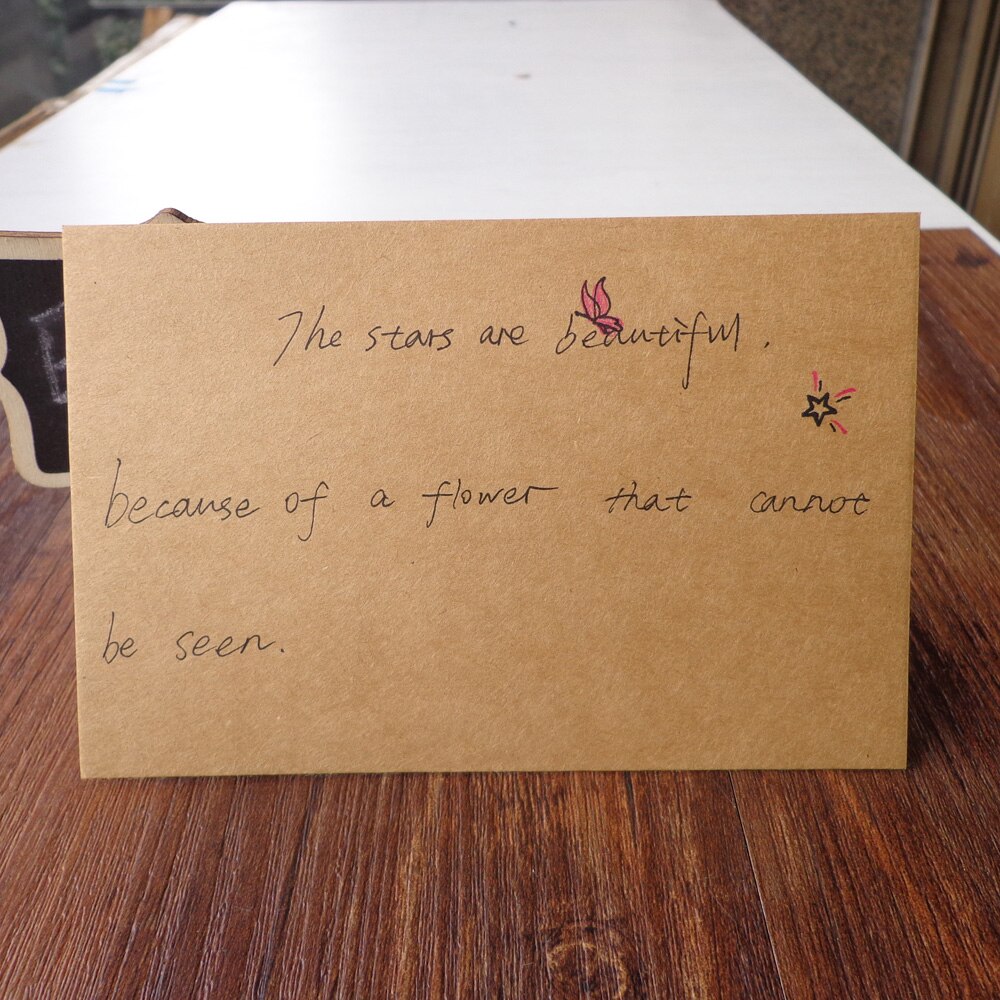 The stars are beautiful.
because of a flower that cannot
be seen.